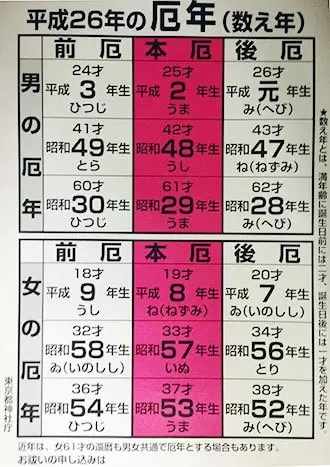 平成26年の厄年(数え年)
男の厄年
前厄 本厄 後厄
24才 25才 26才
平成3年生 平成2年生 平成元年生
ひつじ うま み(へび)
41才 42才 43才
昭和49年生 昭和48年生 昭和47年生
とら うし ね(ねずみ)
60才 61才 62才
昭和30年生 昭和29年生 昭和28年生
ひつじ うま み(へび)
女の厄年
前厄 本厄 後厄
18才 19才 20才
平成9年生 平成8年生 平成7年生
うし ね(ねずみ) ゐ(いのしし)
32才 33才 34才
昭和58年生 昭和57年生 昭和56年生
ゐ(いのしし) いぬ とり
36才 37才 38才
昭和54年生 昭和53年生 昭和52年生
ひつじ うま み(へび)
★数え年とは、満年齢に誕生日前には二才、誕生日後には一才を加えた年です。
東京都神社庁
近年は、女61才の還暦も男女共通で厄年とする場合もあります。
お祓いの申し込みは